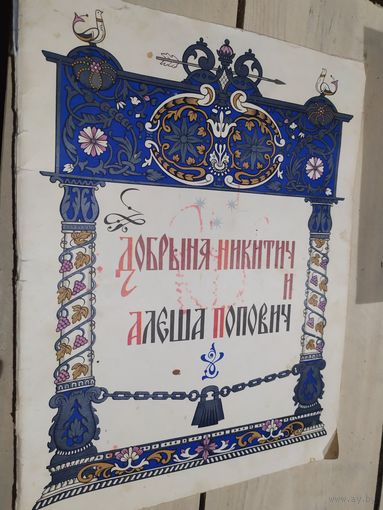 Добрыня Никитич
и
Алеша Попович
www.ay.by